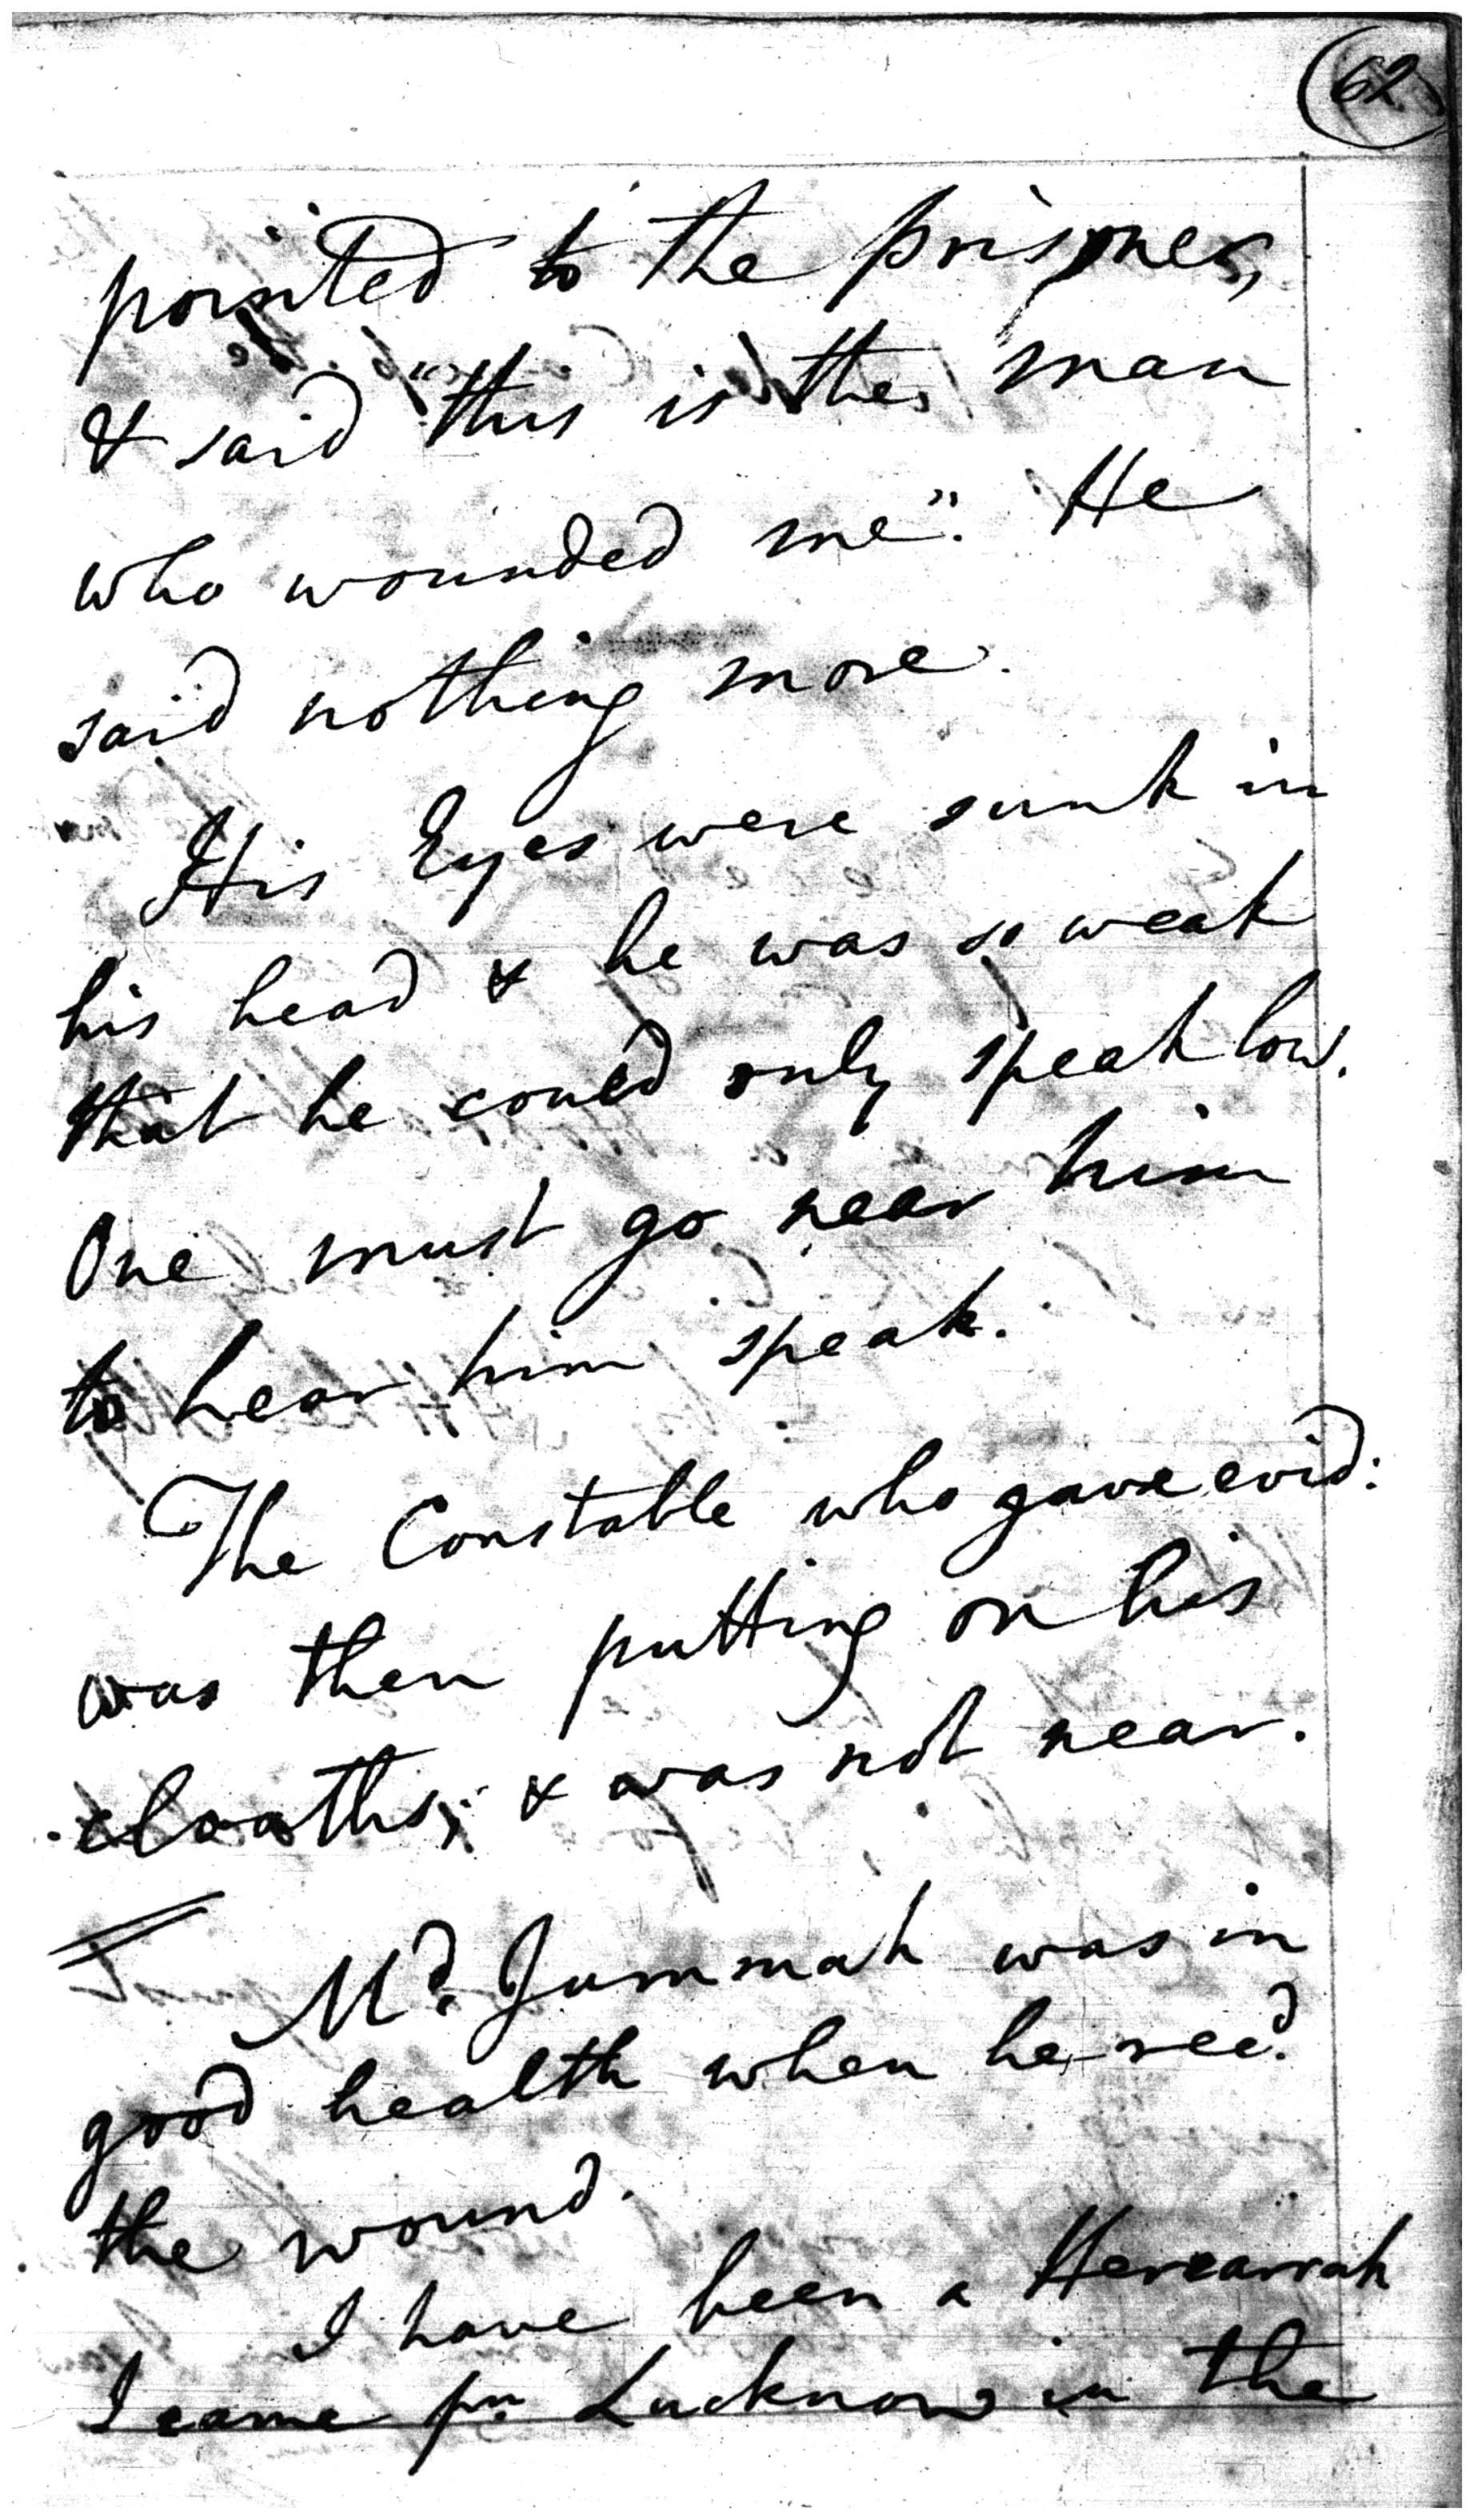 62
pointed to the prisoner,
& said "this is the man
who wounded me". He
said nothing more.
His Eyes were sunk in
his head & he was so weak
that he could only speak low.
One must go near him
to hear him speak.
The Constable who gave evid:
was then putting on his
cloaths, & was not near.
Md. Jummah was in
good health when he recd.
the wound.
I have been a Hercarrah
I came fm Lucknow in the